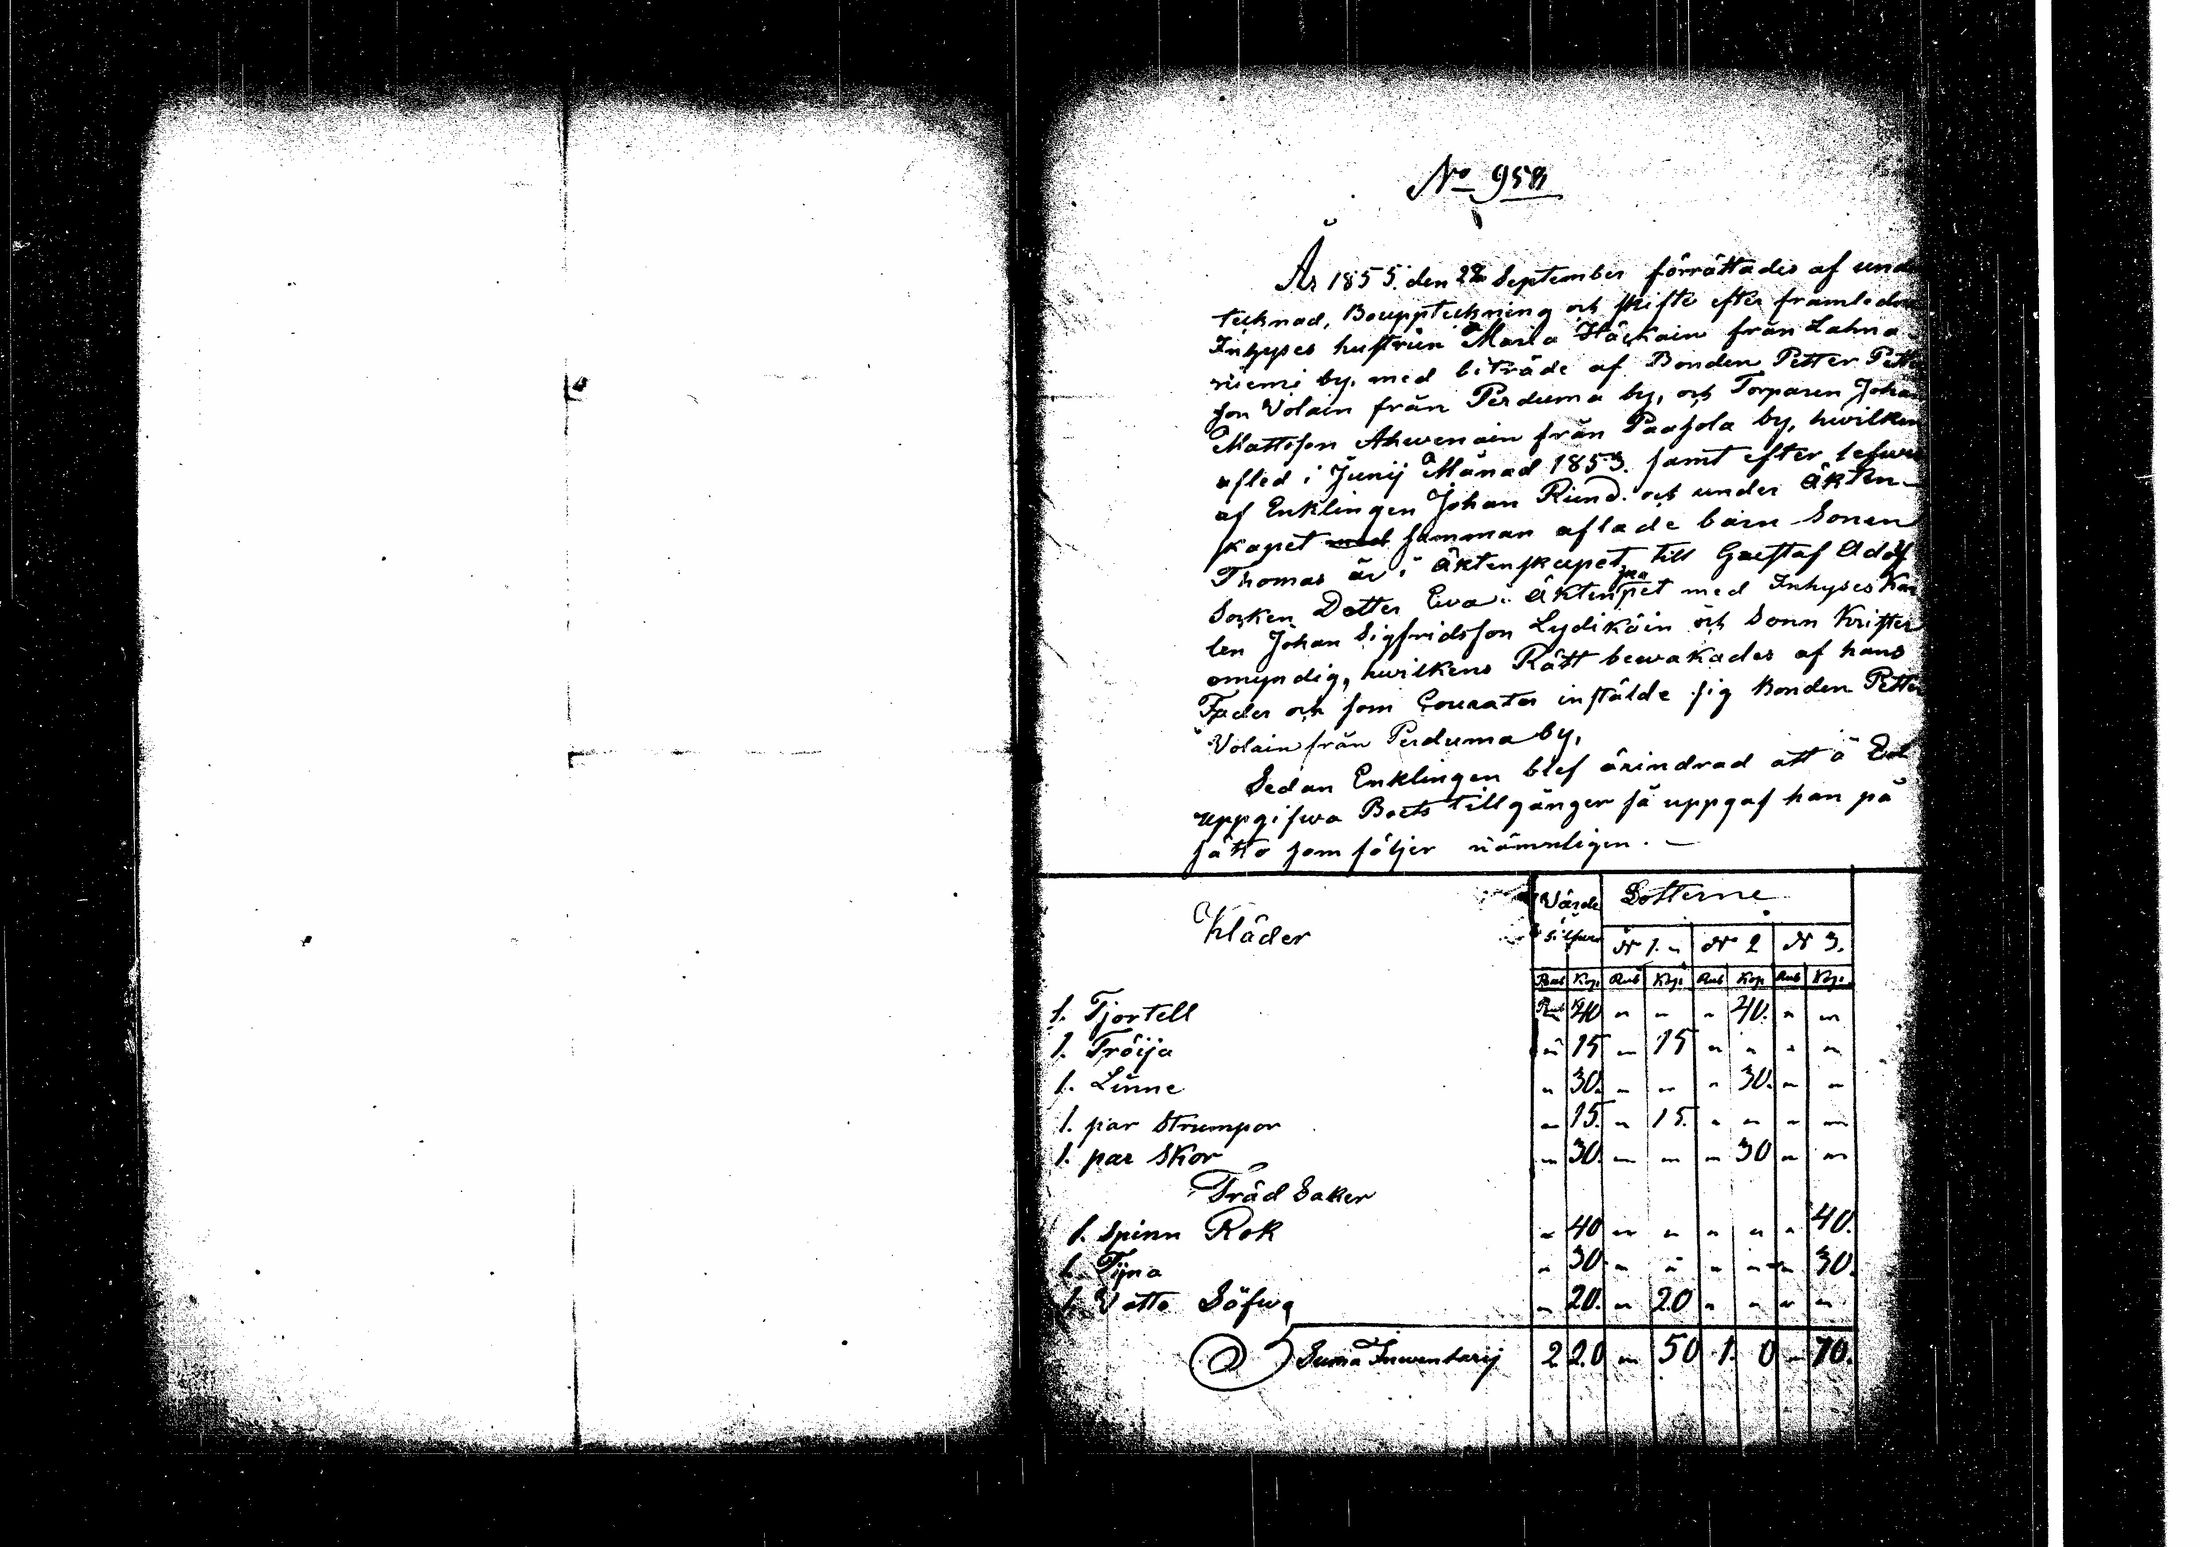 No 958
År 1855. den 28 September förrättades af und
tecknad, Bouppteckning och skifte efter framledn
Inhyses hustrun Maria Häckain från Lahna
niemi by. med biträde af Bonden Petter Pette
son Volain från Perduma by, och Torparen Johan
Mattsson Ahwenain från Paasola by, hwilken
afled i Junij Månad 1853. samt efter lefwer
af Enklingen Johan Rimd. och under äkten-
skapet med samman aflade barn Sonen
Thomas är i äktenskapet till Gustaf Adolf
Socken Dotter Ewa i äktenskapet med Inhyses Kar
len Johan Sigfridsson Lydikäin och Sonn Krister
omyndig, hwilkens Rätt bewakades af hans
Fader och som Courator instälde sig Bonden Petter
Volain från Perduma by,
Sedan Enklingen blef ärindrad att å Ed
uppgifwa Boets tillgånger så uppgaf han på
sätt som följer nämnligen. —
Kläder Värde Silfwer Lotterne
N 1. N 2 N 3.
Rub Kop. Rub Kop. Rub Kop. Rub Kop.
1. Tjortell Rub 40 " " " 40. " "
1. Tröija " 15 " 15 " " " "
1. Linne " 30. " " " 30. " "
1. par Strumpor " 15. " 15. " " " "
1. par Skor " 30. " " " 30 " "
Träd Saker
1. Spinn Rok " 40 " " " " " 40.
1. Tijna " 30. " " " " " 30.
1. Vatto Söfwa " 20. " 20 " " " "
Suma Inwentarij 2 20 " 50 1. 0 " 70.